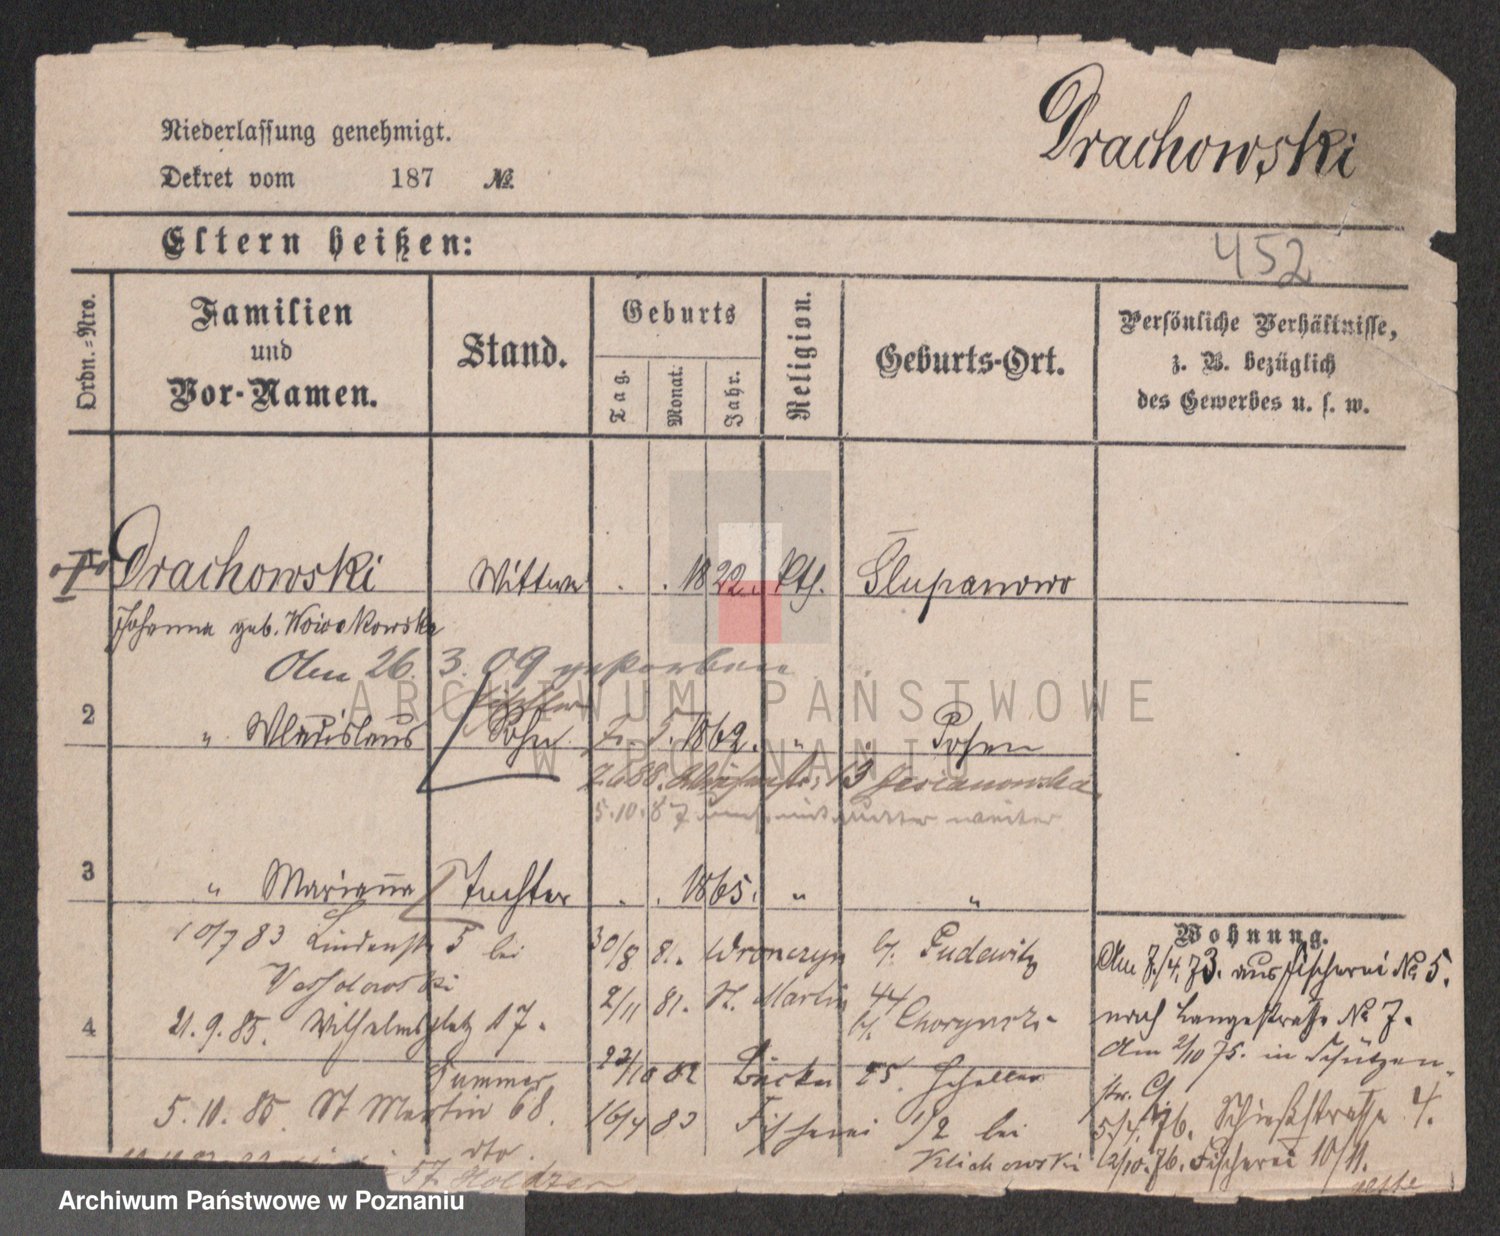 Drachowski
Niederlassung genehmigt.
Dekret vom 187 №
Eltern heißen:
452
Ordn.-Nro.
Familien und Vor-Namen.
Stand.
Geburts
Tag.
Monat.
Jahr.
Religion.
Geburts-Ort.
Persönliche Verhältnisse,
z. B. bezüglich
des Gewerbes u. s. w.
1 Drachowski Wittwe . . 1822. Kth. Slupanowo
Johanna geb. Nowakowska
Am 26. 3. 09 gestorben
2 " Wladislaus Sohn 5. 1862. " Posen
2.6.88. 13
5.10.87
3 " Marianna Tochter . . 1865. " "
10/7 83 Lindenstr 5 bei
30/8 81. Wronczyn b. Pudewitz
2/11 81. St. Martin 44
4 21.9.85. Wilhelmsplatz 17.
22/10 82 Bäcker 25.
5.10.85. St Martin 68.
16/4 83 Fischerei 1/2 bei
Klichowski
dto.
57.
Wohnung.
Am 7./4. 73. aus Fischerei No 5.
nach Langestraße No 7.
Am 2/10 75. in Schützen-
str.
5/4. 76. Schießstrasse 4.
2/10. 76. Fischerei 10/11.
ARCHIWUM PAŃSTWOWE
W POZNANIU
Archiwum Państwowe w Poznaniu